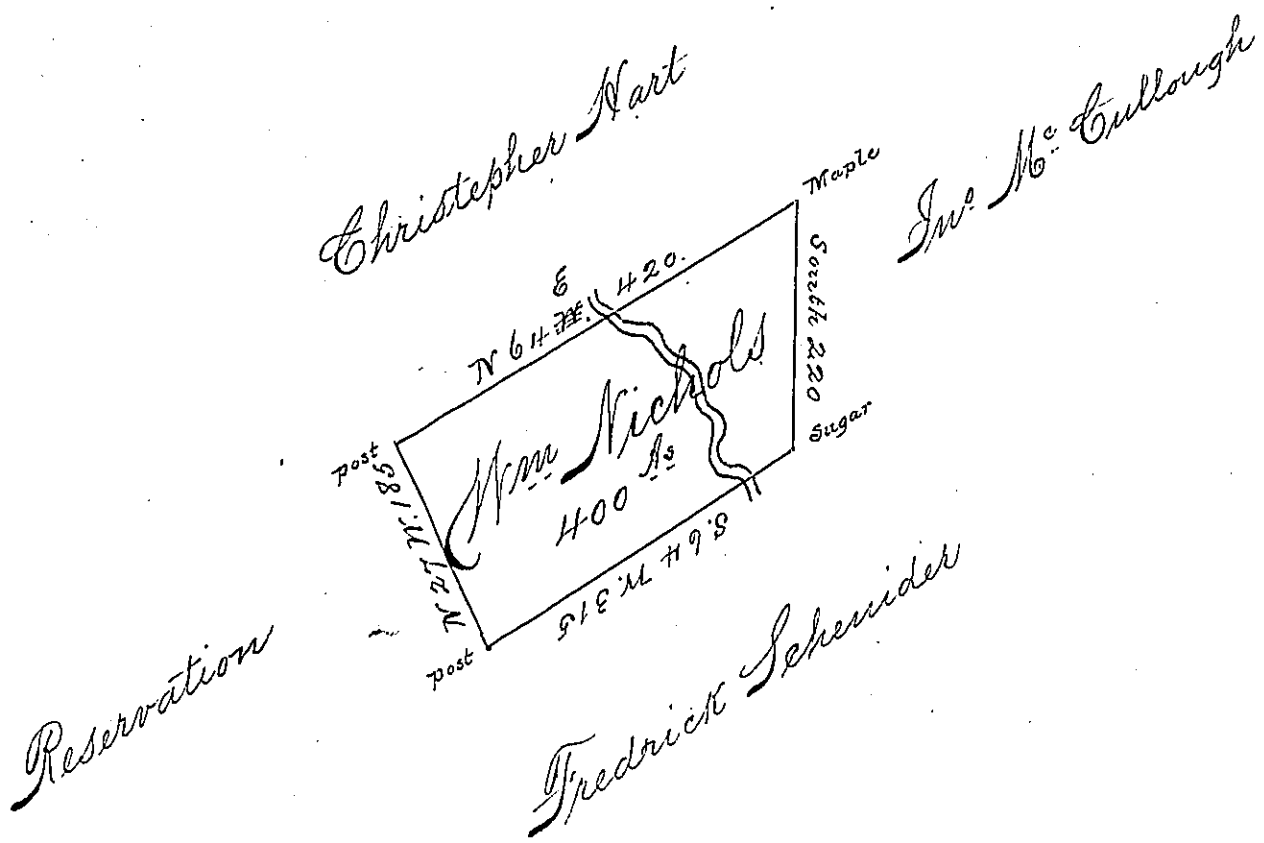 Christopher Hart
Jnº Mᶜ Cullough
Maple
N 64 E 420.
South 220
Wm Nichols
400 As
post
N 27 W. 185
Sugar
S. 64 W. 315
post
Reservation
Fredrick Schenider